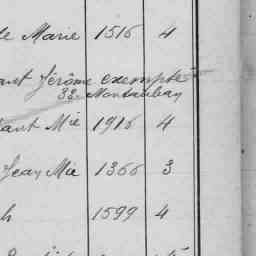 Marie 1516 4
Jérôme exempté
32 Montauban
Mie 1916 4
Jean Mie 1366 3
h 1599 4